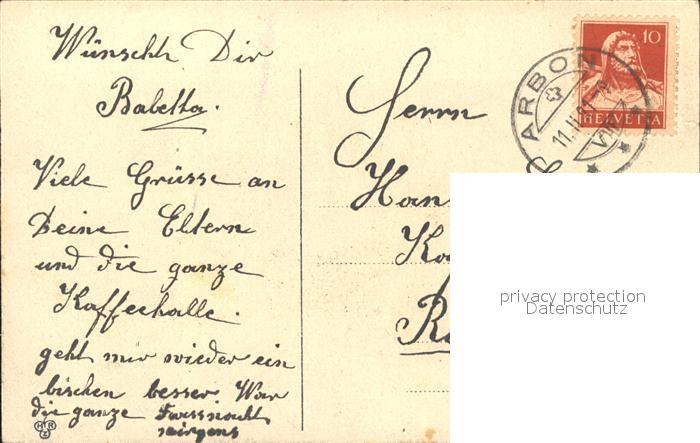 Wünscht Dir
Babetta.
Viele Grüsse an
Deine Eltern
und die ganze
Kaffeehalle.
geht mir wieder ein
bischen besser. War
die ganze Fassnacht
nirgens
HRZ
Herrn
Han
Ro
ARBON
11.II.
VIII-7
10
HELVETIA
privacy protection
Datenschutz